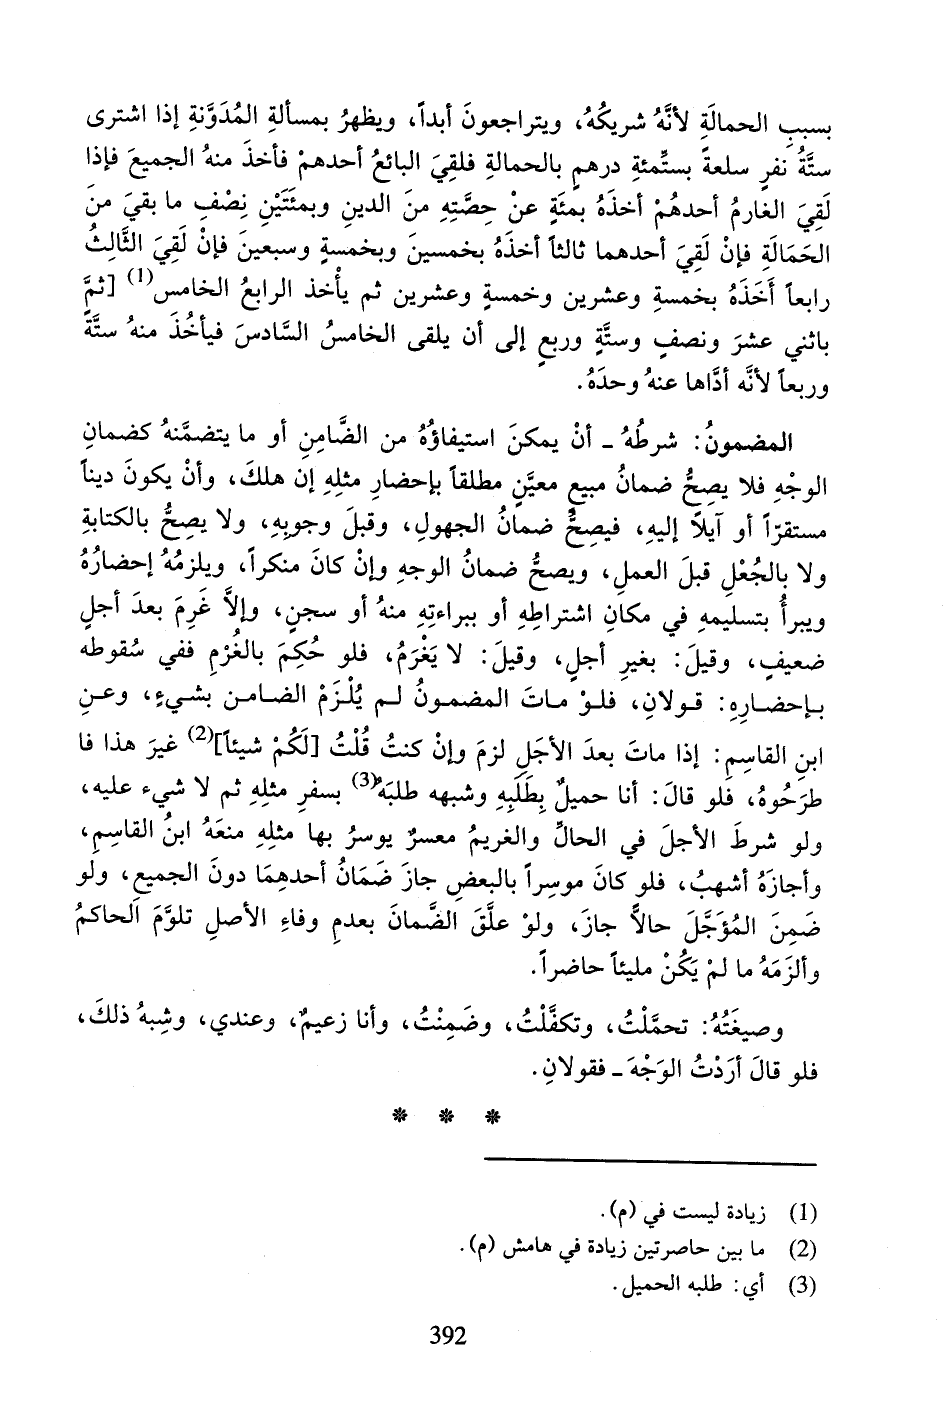 بسببِ الحمالَةِ لأنَّهُ شريكُهُ، ويتراجعونَ أبداً، ويظهرُ بمسألةِ المُدَوَّنةِ إذا اشترى
ستَّةُ نفرٍ سلعةً بستِّمئةِ درهمٍ بالحمالةِ فلقِيَ البائعُ أحدهمْ فأخذَ منهُ الجميعَ فإذا
لَقِيَ الغارمُ أحدهُمْ أخذَهُ بمئَةٍ عنْ حِصَّتِهِ منَ الدينِ وبمئتَيْنِ نِصْفِ ما بقيَ منَ
الحَمَالَةِ فإنْ لَقِيَ أحدهما ثالثاً أخذَهُ بخمسينَ وبخمسةٍ وسبعينَ فإنْ لَقِيَ الثَّالِثُ
رابعاً أَخَذَهُ بخمسةٍ وعشرين وخمسةٍ وعشرين ثم يأْخذ الرابعُ الخامس(1) [ثمَّ
باثني عشرَ ونصفٍ وستَّةٍ وربعٍ إلى أن يلقى الخامسُ السَّادسَ فيأخُذَ منهُ ستَّةً
وربعاً لأنَّه أدَّاها عنهُ وحدَهُ.
المضمونُ: شرطُهُ ـ أنْ يمكنَ استيفاؤُهُ من الضَّامِنِ أو ما يتضمَّنهُ كضمانِ
الوجْهِ فلا يصِحُّ ضمانُ مبيعٍ معيَّنٍ مطلقاً بإحضارِ مثلِهِ إن هلكَ، وأنْ يكونَ ديناً
مستقرّاً أو آيلاً إليهِ، فيصِحُّ ضمانُ الجهولِ، وقبلَ وجوبِهِ، ولا يصِحُّ بالكتابةِ
ولا بالجُعْلِ قبلَ العملِ، ويصحُّ ضمانُ الوجهِ وإنْ كانَ منكراً، ويلزمُهُ إحضارُهُ
ويبرأُ بتسليمهِ في مكانِ اشتراطِهِ أو ببراءتِهِ منهُ أو سجنٍ، وإلاَّ غَرِمَ بعدَ أجلٍ
ضعيفٍ، وقيلَ: بغيرِ أجلٍ، وقيلَ: لا يَغْرَمُ، فلو حُكِمَ بالغُرْمِ ففي سُقوطه
بإحضارِهِ: قولانِ، فلوْ ماتَ المضمونُ لم يُلْزَمْ الضامن بشيءٍ، وعنِ
ابنِ القاسِمِ: إذا ماتَ بعدَ الأجَلِ لزمَ وإنْ كنتُ قُلْتُ [لَكُمْ شيئاً](2) غيرَ هذا فا
طرَحُوهُ، فلو قالَ: أنا حميلٌ بِطَلَبِهِ وشبهه طلبَهُ(3) بسفرِ مثلِهِ ثم لا شيء عليه،
ولو شرطَ الأجلَ في الحالِّ والغريمُ معسرٌ يوسرُ بها مثلِهِ منعَهُ ابنُ القاسِمِ،
وأجازَهُ أشهبُ، فلو كانَ موسِراً بالبعضِ جازَ ضَمَانُ أحدهِمَا دونَ الجميعِ، ولو
ضَمِنَ المُؤَجَّلَ حالاًّ جازَ، ولوْ علَّقَ الضَّمانَ بعدمِ وفاءِ الأصلِ تلوَّمَ الحاكمُ
وألزَمَهُ ما لمْ يَكُنْ مليئاً حاضراً.
وصيغَتُهُ: تحمَّلْتُ، وتكفَّلْتُ، وضَمِنْتُ، وأنا زعيمٌ، وعندي، وشِبهُ ذلكَ،
فلو قالَ أرَدْتُ الوَجْهَ ـ فقولانِ.
* * *
(1) زيادة ليست في (م).
(2) ما بين حاصرتين زيادة في هامش (م).
(3) أي: طلبه الحميل.
392